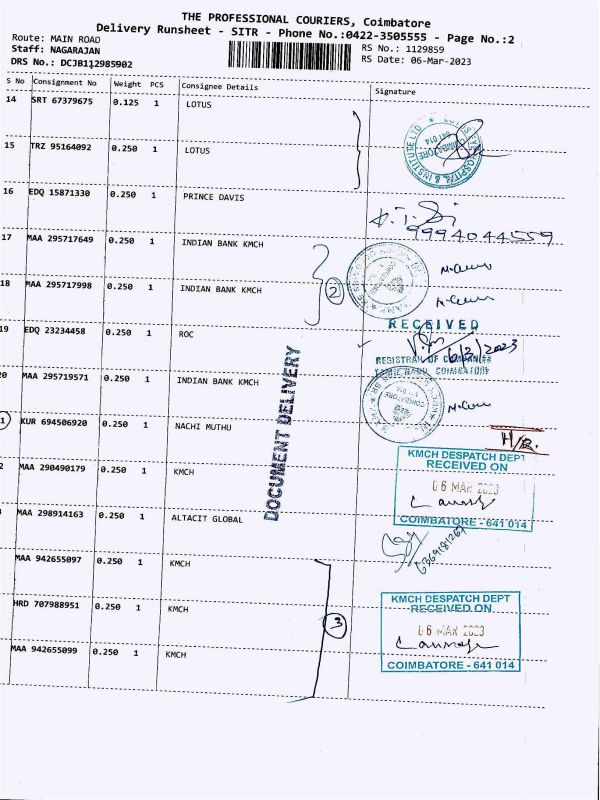 THE PROFESSIONAL COURIERS, Coimbatore
Delivery Runsheet - SITR - Phone No.:0422-3505555 - Page No.:2
Route: MAIN ROAD
Staff: NAGARAJAN
DRS No.: DCJB112985902
RS No.: 1129859
RS Date: 06-Mar-2023
S No Consignment No Weight PCS Consignee Details Signature
14 SRT 67379675 0.125 1 LOTUS
15 TRZ 95164092 0.250 1 LOTUS
16 EDQ 15871330 0.250 1 PRINCE DAVIS
9994044559
17 MAA 295717649 0.250 1 INDIAN BANK KMCH
2
18 MAA 295717998 0.250 1 INDIAN BANK KMCH
RECEIVED
19 EDQ 23234458 0.250 1 ROC
6/3/2023
REGISTRAR OF COMPANIES
COIMBATORE
20 MAA 295719571 0.250 1 INDIAN BANK KMCH
1 KUR 694506920 0.250 1 NACHI MUTHU
H/R.
DOCUMENT DELIVERY
2 MAA 290490179 0.250 1 KMCH
KMCH DESPATCH DEPT
RECEIVED ON
06 MAR 2023
COIMBATORE - 641 014
MAA 298914163 0.250 1 ALTACIT GLOBAL
MAA 942655097 0.250 1 KMCH
HRD 707988951 0.250 1 KMCH
3
MAA 942655099 0.250 1 KMCH
KMCH DESPATCH DEPT
RECEIVED ON
06 MAR 2023
COIMBATORE - 641 014